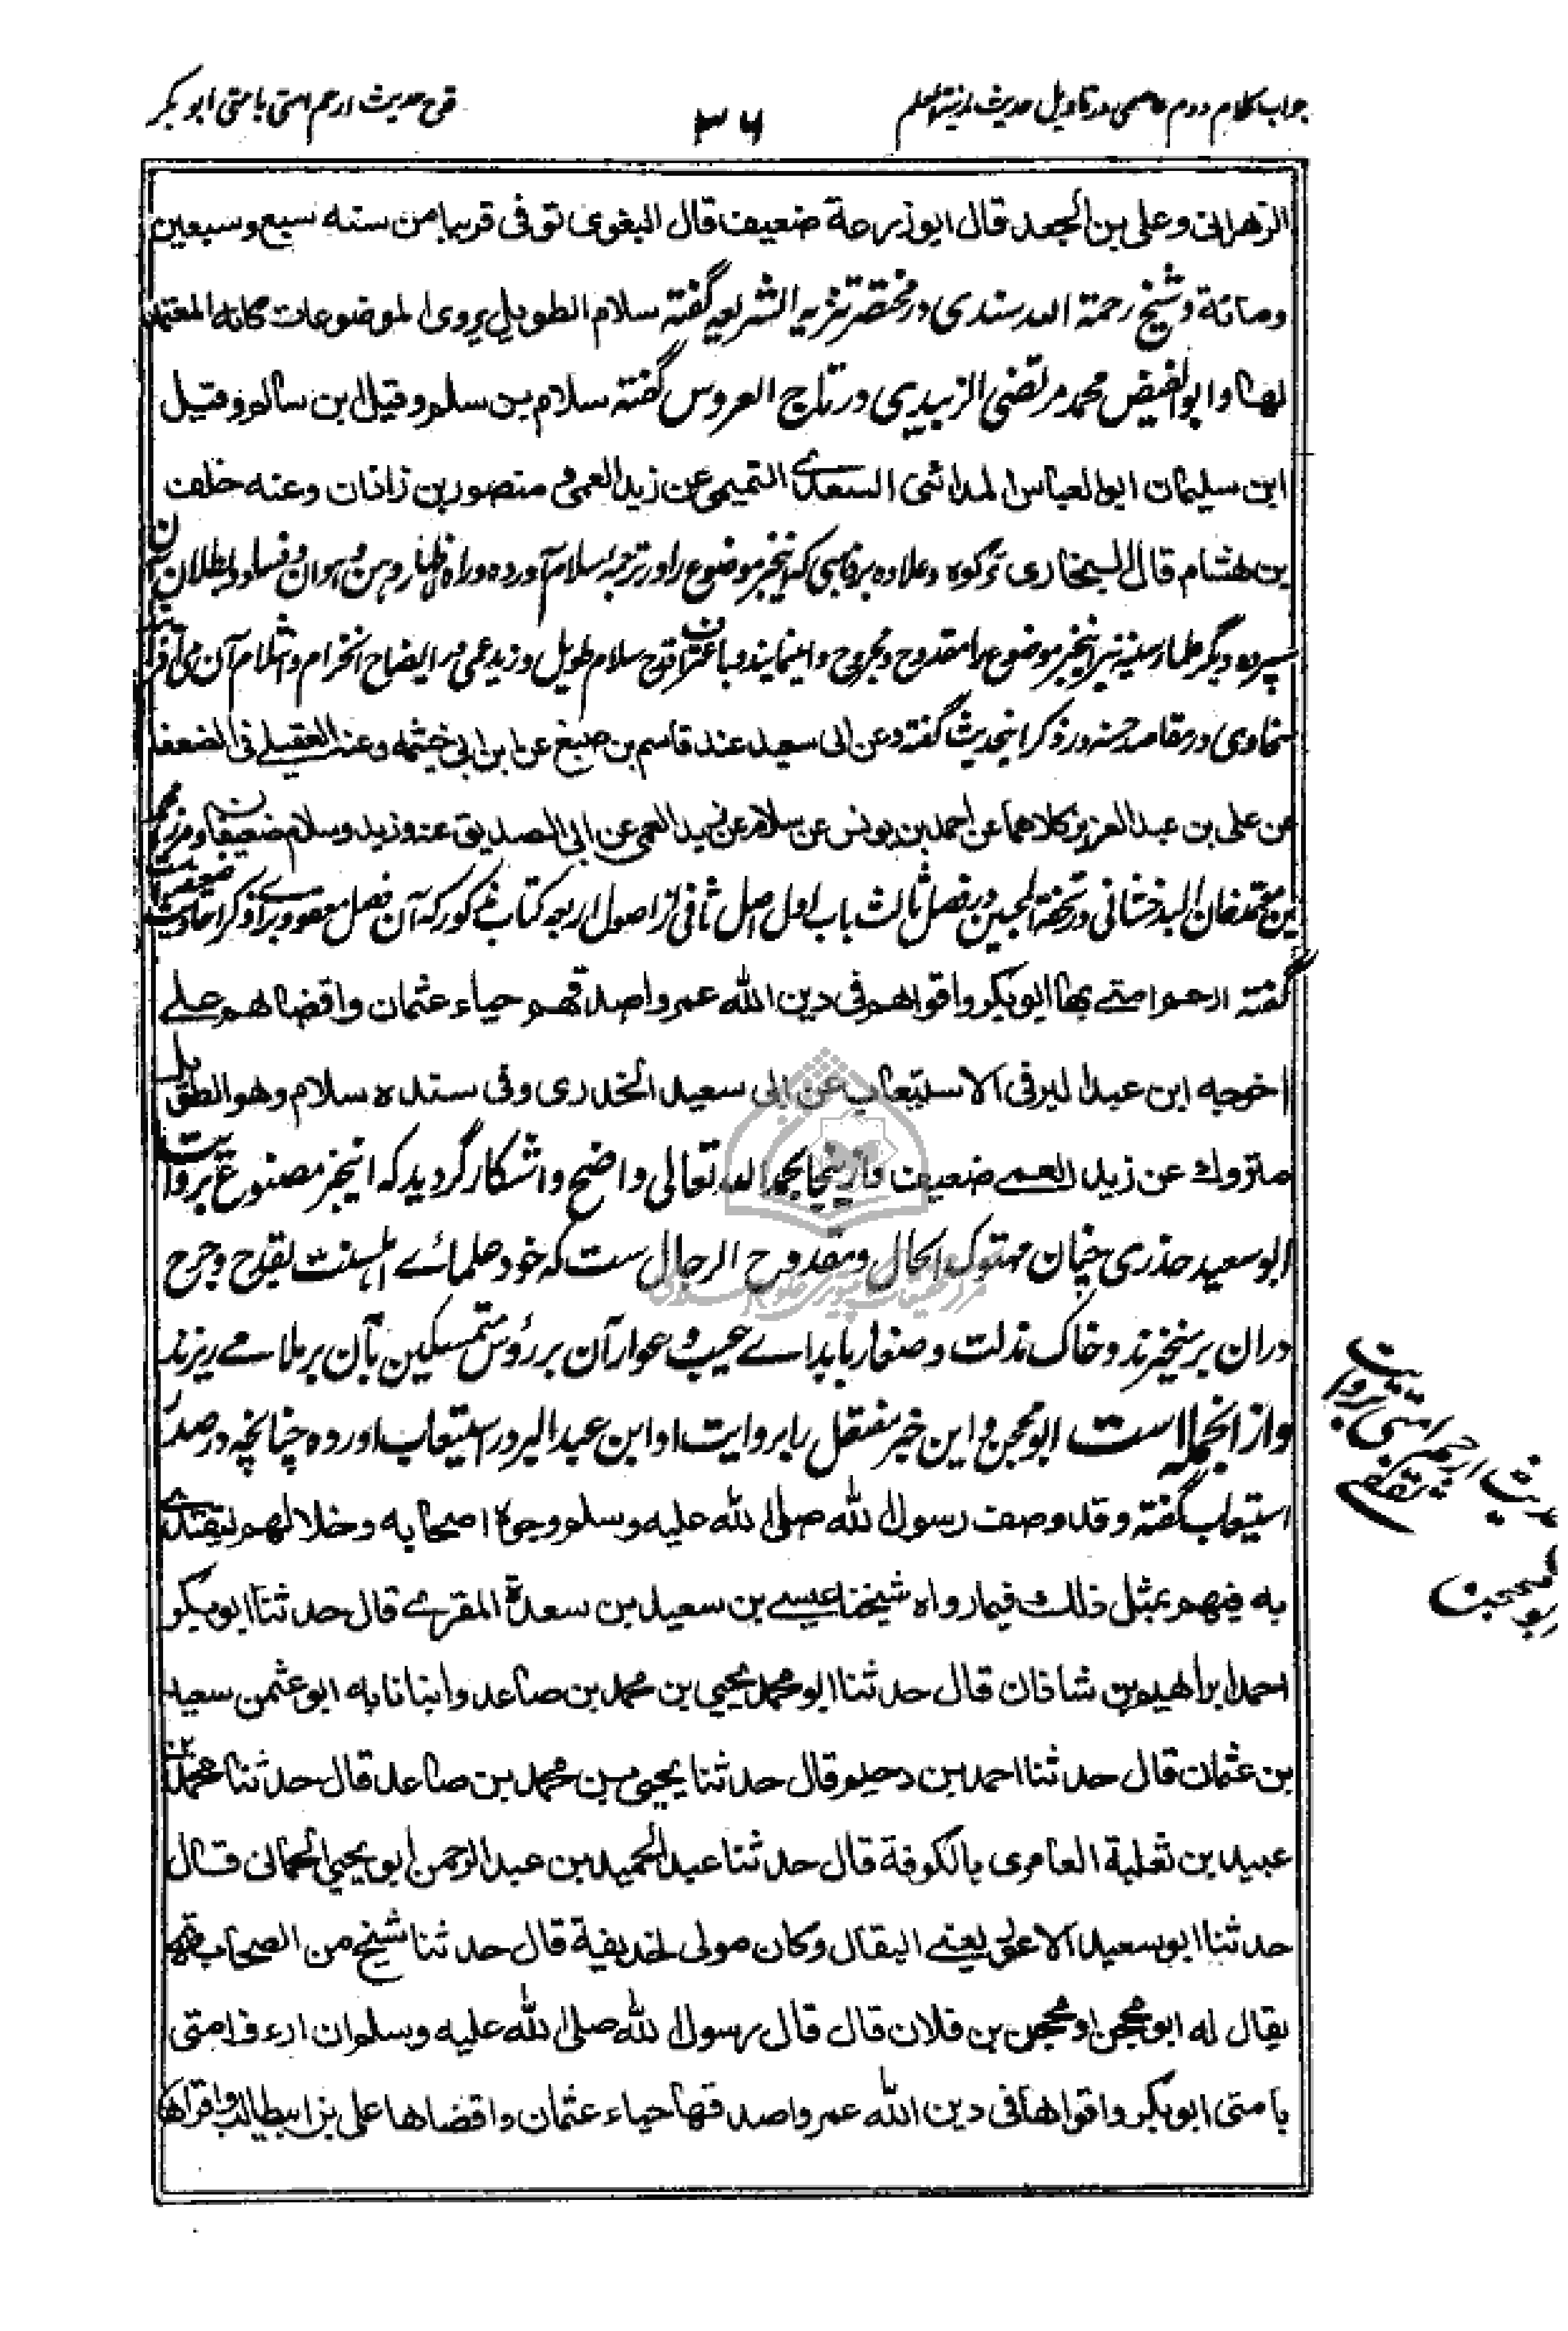 جواب کلام دوم عاصمی در تاویل حدیث مدینة العلم
۳۶
قدح حدیث ارحم امتی بامتی ابوبکر
الزهرانی وعلی بن الجعد قال ابو زرعة ضعیف قال البغوی توفی قریبا من سنه سبع وسبعین
ومائة وشیخ رحمة الله سندی در مختصر تنزیه الشریعه گفته سلام الطویل یروی الموضوعات کانه المعتمد
لها وابو الفیض محمد مرتضی الزبیدی در تاج العروس گفته سلام بن سلم وقیل ابن سالم وقیل
ابن سلیمان ابو العباس المدائنی السعدی التمیمی عن زید العمی و منصور بن زاذان وعنه خلف
بن هشام قال البخاری ترکوه وعلاوه بر ذهبی که اینخبر موضوع را در ترجمهٔ سلام آورده و راه اظهار وهن و هوان و فساد و بطلان آن
سپرده دیگر علماء سنیه نیز اینخبر موضوع را مقدوح و مجروح وامینمایند و باعتراف قدح سلام طویل و زید عمی در ایضاح انخرام و انثلام آن می افزایند
سخاوی در مقاصد حسنه در ذکر اینحدیث گفته وعن ابی سعید عند قاسم بن اصبغ عن ابن ابی خیثمه وعند العقیلی فی الضعفا
عن علی بن عبد العزیز کلاهما عن احمد بن یونس عن سلام عن زید العمی عن ابی الصدیق عنه وزید وسلام ضعیفان و مرزا محمد
بن معتمد خان البدخشانی در تحفة المحبین در فصل ثالث باب اول اصل ثانی از اصول اربعه کتاب مذکور که آن فصل معقود برای ذکر احادیث ضعیفه است
گفته ارحم امتی بها ابوبکر واقواهم فی دین الله عمر واصدقهم حیاء عثمان واقضاهم علی
اخرجه ابن عبد البر فی الاستیعاب عن ابی سعید الخدری وفی سنده سلام وهو الطویل
متروك عن زید العمی ضعیف وازینجا بحمد الله تعالی واضح و آشکار گردید که اینخبر مصنوع بروایت
ابو سعید خدری چنان مهتوک الحال و مقدوح الرجال ست که خود علمائے اهلسنت بقدح و جرح
دران برمیخیزند و خاک مذلت و صغار بابدائے عیب و عوار آن بر رؤس متمسکین بآن برملا مے ریزند
واز انجمله است ابو محجن و این خبر مفتعل را بروایت او ابن عبد البر در استیعاب آورده چنانچه در صدر
استیعاب گفته وقد وصف رسول الله صلی الله علیه وسلم وجوه اصحابه وخلالهم لیقتدی
به فیهم بمثل ذلك فیما رواه شیخنا عیسی بن سعید بن سعدة المقری قال حدثنا ابوبکر
احمد ابراهیم بن شاذان قال حدثنا ابو محمد یحیی بن محمد بن صاعد وانبانا به ابو عثمن سعید
بن عثمان قال حدثنا احمد بن دحیم قال حدثنا یحیی بن محمد بن صاعد قال حدثنا محمد بن
عبید بن ثعلبة العامری بالکوفة قال حدثنا عبد الحمید بن عبد الرحمن ابو یحیی الحمانی قال
حدثنا ابو سعید الاعور یعنی البقال وکان مولی لحذیفة قال حدثنا شیخ من الصحابة
یقال له ابو محجن او محجن بن فلان قال قال رسول الله صلی الله علیه وسلم ان ارءف امتی
بامتی ابوبکر واقواها فی دین الله عمر واصدقها حیاء عثمان واقضاها علی بن ابیطالب واقراها
حدیث ارحم امتی بروایت
ابو محجن